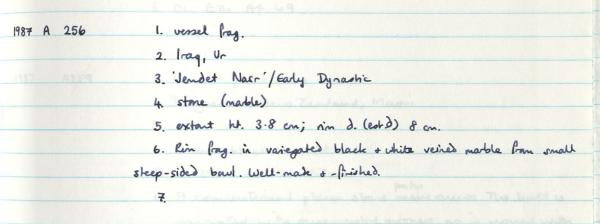 1987 A 256 1. vessel frag.
2. Iraq, Ur
3. 'Jemdet Nasr'/Early Dynastic
4. stone (marble)
5. extant ht. 3.8 cm; rim d. (est'd) 8 cm.
6. Rim frag. in variegated black + white veined marble from small
steep-sided bowl. Well-made + -finished.
7.